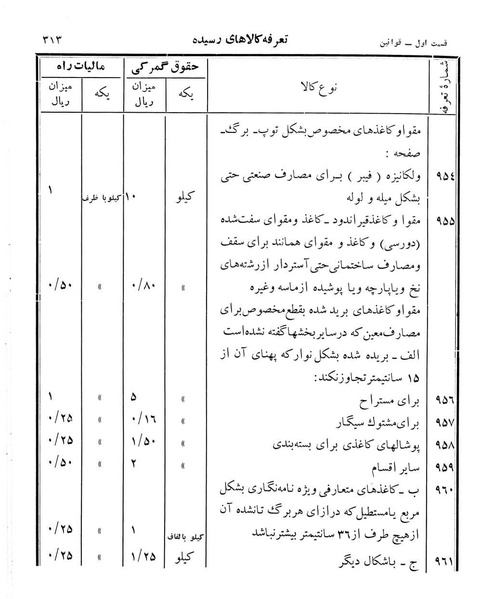 قسمت اول — قوانین
تعرفه کالاهای رسیده
۳۱۳
شمارهٔ تعرفه
نوع کالا
حقوق گمرکی
مالیات راه
یکه
میزان ریال
یکه
میزان ریال
مقوا و کاغذهای مخصوص بشکل توپ ـ برگ ـ
صفحه :
۹۵۴ ولکانیزه ( فیبر ) برای مصارف صنعتی حتی
بشکل میله و لوله کیلو ۱۰ کیلو با ظرف ۱
۹۵۵ مقوا و کاغذ قیراندود ـ کاغذ و مقوای سفت شده
(دورسی) و کاغذ و مقوای همانند برای سقف
و مصارف ساختمانی حتی آستردار از رشته‌های
نخ و یا پارچه و یا پوشیده از ماسه و غیره » ۰/۸۰ » ۰/۵۰
مقوا و کاغذهای بریده شده بقطع مخصوص برای
مصارف معین که در سایر بخشها گفته نشده است
الف ـ بریده شده بشکل نوار که پهنای آن از
۱۵ سانتیمتر تجاوز نکند:
۹۵۶ برای مستراح » ۵ » ۱
۹۵۷ برای مشتوک سیگار » ۰/۱۶ » ۰/۲۵
۹۵۸ پوشالهای کاغذی برای بسته‌بندی » ۱/۵۰ » ۰/۲۵
۹۵۹ سایر اقسام » ۲ » ۰/۵۰
۹۶۰ ب ـ کاغذهای متعارفی ویژه نامه‌نگاری بشکل
مربع یا مستطیل که درازای هر برگ تا نشده آن
از هیچ طرف از ۳۶ سانتیمتر بیشتر نباشد کیلو با لفاف ۱ » ۰/۲۵
۹۶۱ ج ـ باشکال دیگر کیلو ۱/۲۵ » ۰/۲۵